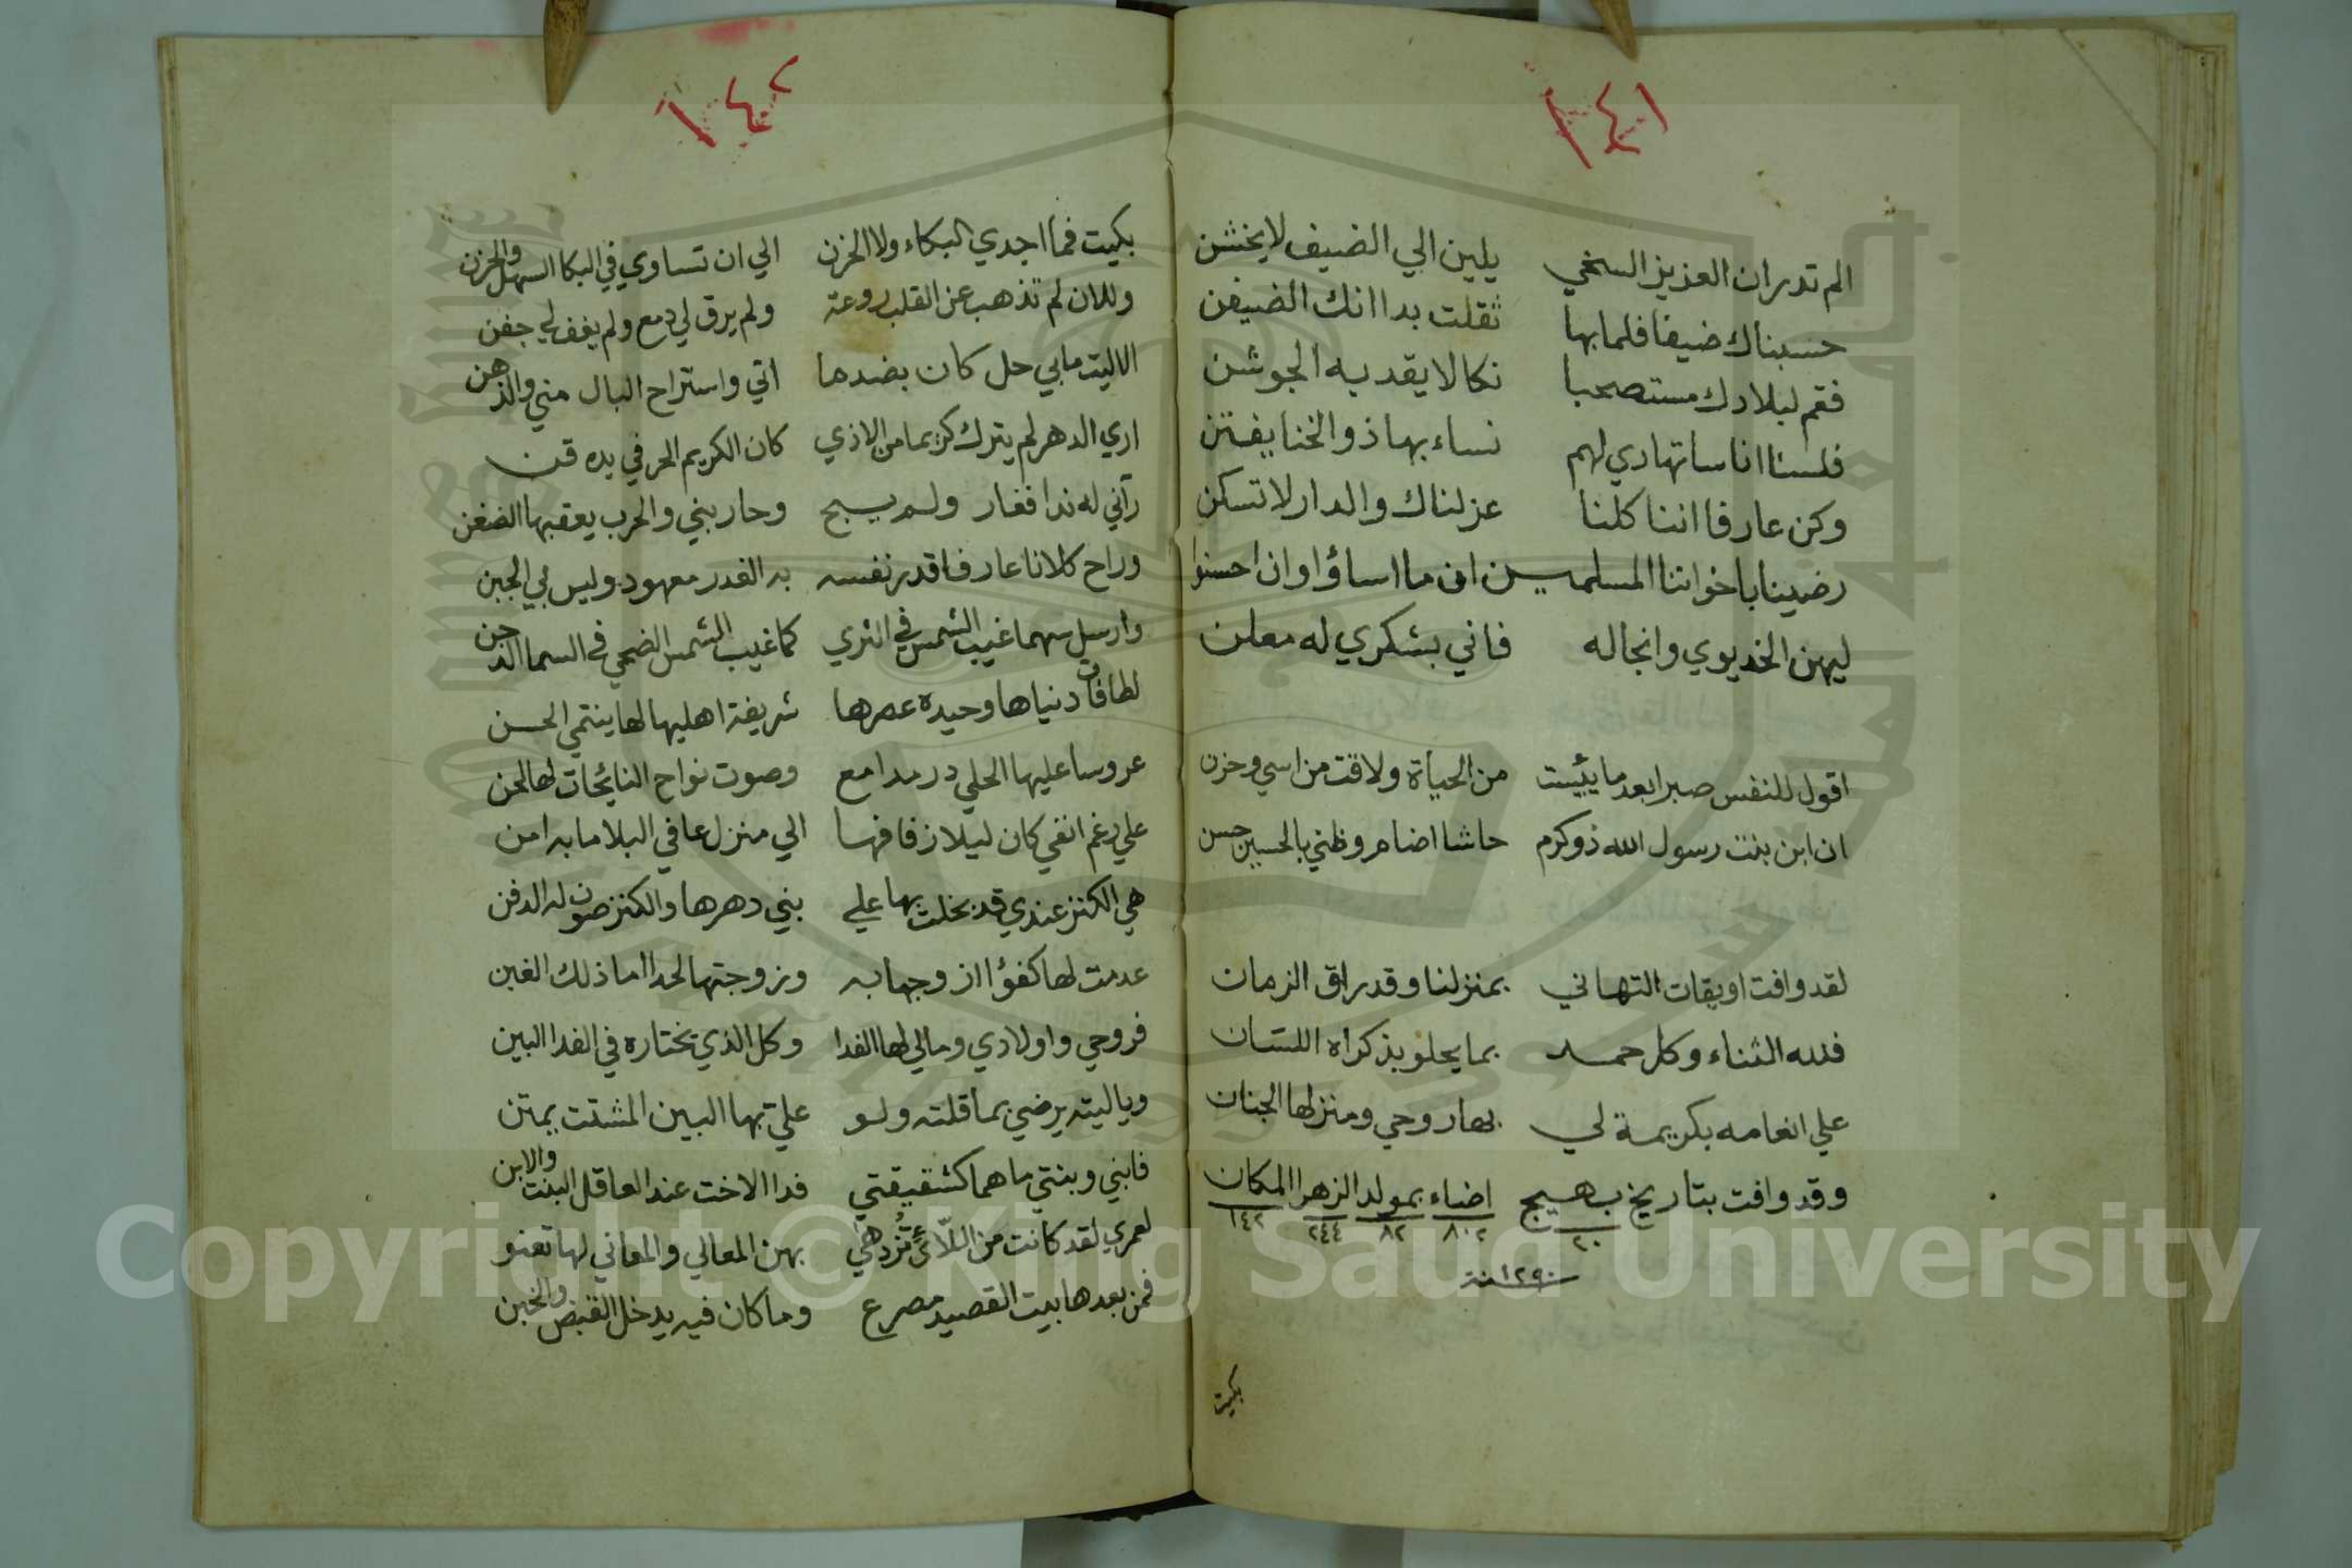 ١٤١
الم تدر ان العزيز السخي يلين الي الضيف لا يخشن
حسبناك ضيفا فلما بها ثقلت بدا انك الضيفن
فقم لبلادك مستصحبا نكالا يقد به الجوشن
فلسنا اناسا تهادي لهم نساء بها ذو الخنا يفتن
وكن عارفا اننا كلنا عزلناك والدار لا تسكن
رضينا باخواننا المسلمين ان ما اساؤا وان احسنوا
ليهن الخديوي وانجاله فاني بشكري له معلن
اقول للنفس صبرا بعد ما يئست من الحياة ولاقت من اسي وحزن
ان ابن بنت رسول الله ذو كرم حاشا اضام وظني بالحسين حسن
لقد وافت اويقات التهاني بمنزلنا وقد راق الزمان
فلله الثناء وكل حمد بما يحلو بذكراه اللسان
علي انعامه بكريمة لي بها روحي ومنزلها الجنان
وقد وافت بتاريخ بهيج اضاء بمولد الزهرا المكان
٢٠ ٨٠٢ ٨٢ ٢٤٤ ١٤٢
سنة ١٢٩٠
بكيت
١٤٢
بكيت فما اجدي البكاء ولا الحزن الي ان تساوي في البكا السهل والحزن
وللان لم تذهب عن القلب روعة ولم يرق لي دمع ولم يغف لي جفن
الا ليت ما بي حل كان بضدها اتي واستراح البال مني والذهن
اري الدهر لم يترك كريما من الاذي كان الكريم الحر في يده قن
رآني له ندا فغار ولم يبح وحاربني والحرب يعقبها الضغن
وراح كلانا عارفا قدر نفسه به الغدر معهود وليس بي الجبن
وارسل سهما غيب الشمس في الثري كما غيب الشمس الضحي في السما الدجن
لطافة دنياها وحيدة عصرها شريفة اهليها لها ينتمي الحسن
عروسا عليها الحلي در مدامع وصوت نواح النايحات لها لحن
علي رغم انفي كان ليلا زفافها الي منزل عافي البلا ما به امن
هي الكنز عندي قد بخلت بها علي بني دهرها والكنز صون له الدفن
عدمت لها كفؤا ازوجها به وزوجتها لحدا اما ذلك الغبن
فروحي واولادي ومالي لها الفدا وكل الذي تختاره في الفدا البين
ويا ليته يرضي بما قلته ولو علي بها البين المشتت يمتن
فابني وبنتي ما هما كشقيقتي فدا الاخت عند العاقل البنت والابن
لعمري لقد كانت من اللائي تزدهي بهن المعالي والمعاني لها تعنو
فمن بعدها بيت القصيد مصرع وما كان فيه يدخل القبض والخبن
Copyright © King Saud University